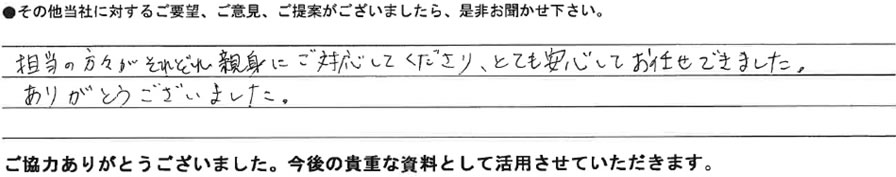 ●その他当社に対するご要望、ご意見、ご提案がございましたら、是非お聞かせ下さい。
担当の方々がそれぞれ親身にご対応してくださり、とても安心してお任せできました。
ありがとうございました。
ご協力ありがとうございました。今後の貴重な資料として活用させていただきます。